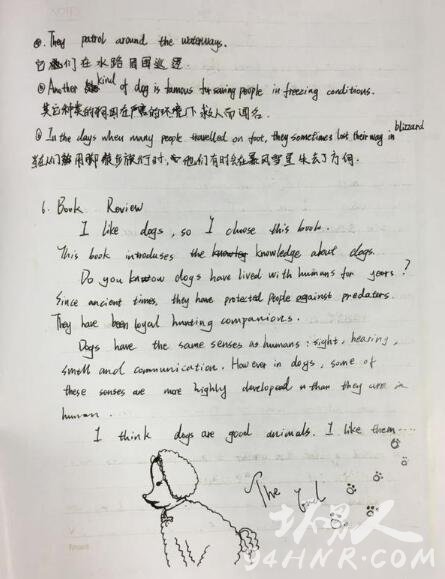 ②. They patrol around the waterways.
它们在水路周围巡逻
③ Another kind of dog is famous for saving people in freezing conditions.
其它种类的狗因在严寒的环境下救人而闻名.
④ In the days when many people travelled on foot, they sometimes lost their way in blizzard
当人们都用脚步旅行时, 他们有时会在暴风雪里失去了方向.
6. Book Review
I like dogs, so I choose this book.
This book introduses the knowledge about dogs.
Do you know dogs have lived with humans for years?
Since ancient times, they have protected people against predators.
They have been loyal hunting companions.
Dogs have the same senses as humans: sight, hearing,
smell and communication. However in dogs, some of
these senses are more highly developed than they are in
human.
I think dogs are good animals. I like them.....
The End
坏男人
94HNR.COM